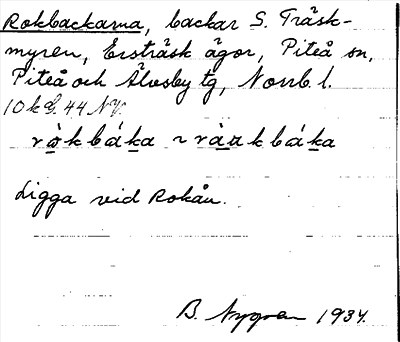 Rokbackarna, backar S. Träsk-
myren, Ersträsk ägor, Piteå sn,
Piteå och Älvsby tg, Norrb. l.
10 k G. 44 NV.
rò̲kbáka ~ rà̲a̲kbáka
Ligga vid Rokån.
B. Nygren 1934.